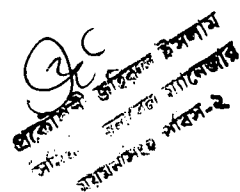 প্রকৌশলী জহিরুল ইসলাম
জেনারেল ম্যানেজার
ময়মনসিংহ পবিস-২